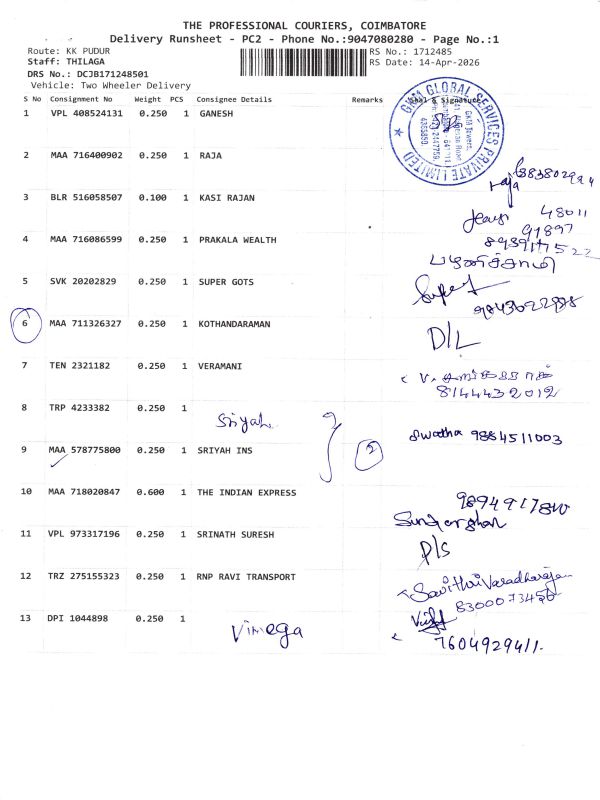 THE PROFESSIONAL COURIERS, COIMBATORE
Delivery Runsheet - PC2 - Phone No.:9047080280 - Page No.:1
Route: KK PUDUR
RS No.: 1712485
Staff: THILAGA
RS Date: 14-Apr-2026
DRS No.: DCJB171248501
Vehicle: Two Wheeler Delivery
S No Consignment No Weight PCS Consignee Details Remarks Seal & Signature
GKM GLOBAL SERVICES PRIVATE LIMITED
GKM Towers,
1 VPL 408524131 0.250 1 GANESH
2 MAA 716400902 0.250 1 RAJA
raja
3 BLR 516058507 0.100 1 KASI RAJAN
48011
91897
4 MAA 716086599 0.250 1 PRAKALA WEALTH
8939117522
பழனிச்சாமி
5 SVK 20202829 0.250 1 SUPER GOTS
Super
6 MAA 711326327 0.250 1 KOTHANDARAMAN
D/L
7 TEN 2321182 0.250 1 VERAMANI
8144432012
8 TRP 4233382 0.250 1
Sriyah
9 MAA 578775800 0.250 1 SRIYAH INS
2
Swatha 9884511003
10 MAA 718020847 0.600 1 THE INDIAN EXPRESS
11 VPL 973317196 0.250 1 SRINATH SURESH
D/S
12 TRZ 275155323 0.250 1 RNP RAVI TRANSPORT
Savithri Varadharajan
8300073456
13 DPI 1044898 0.250 1
Vimega
7604929411.